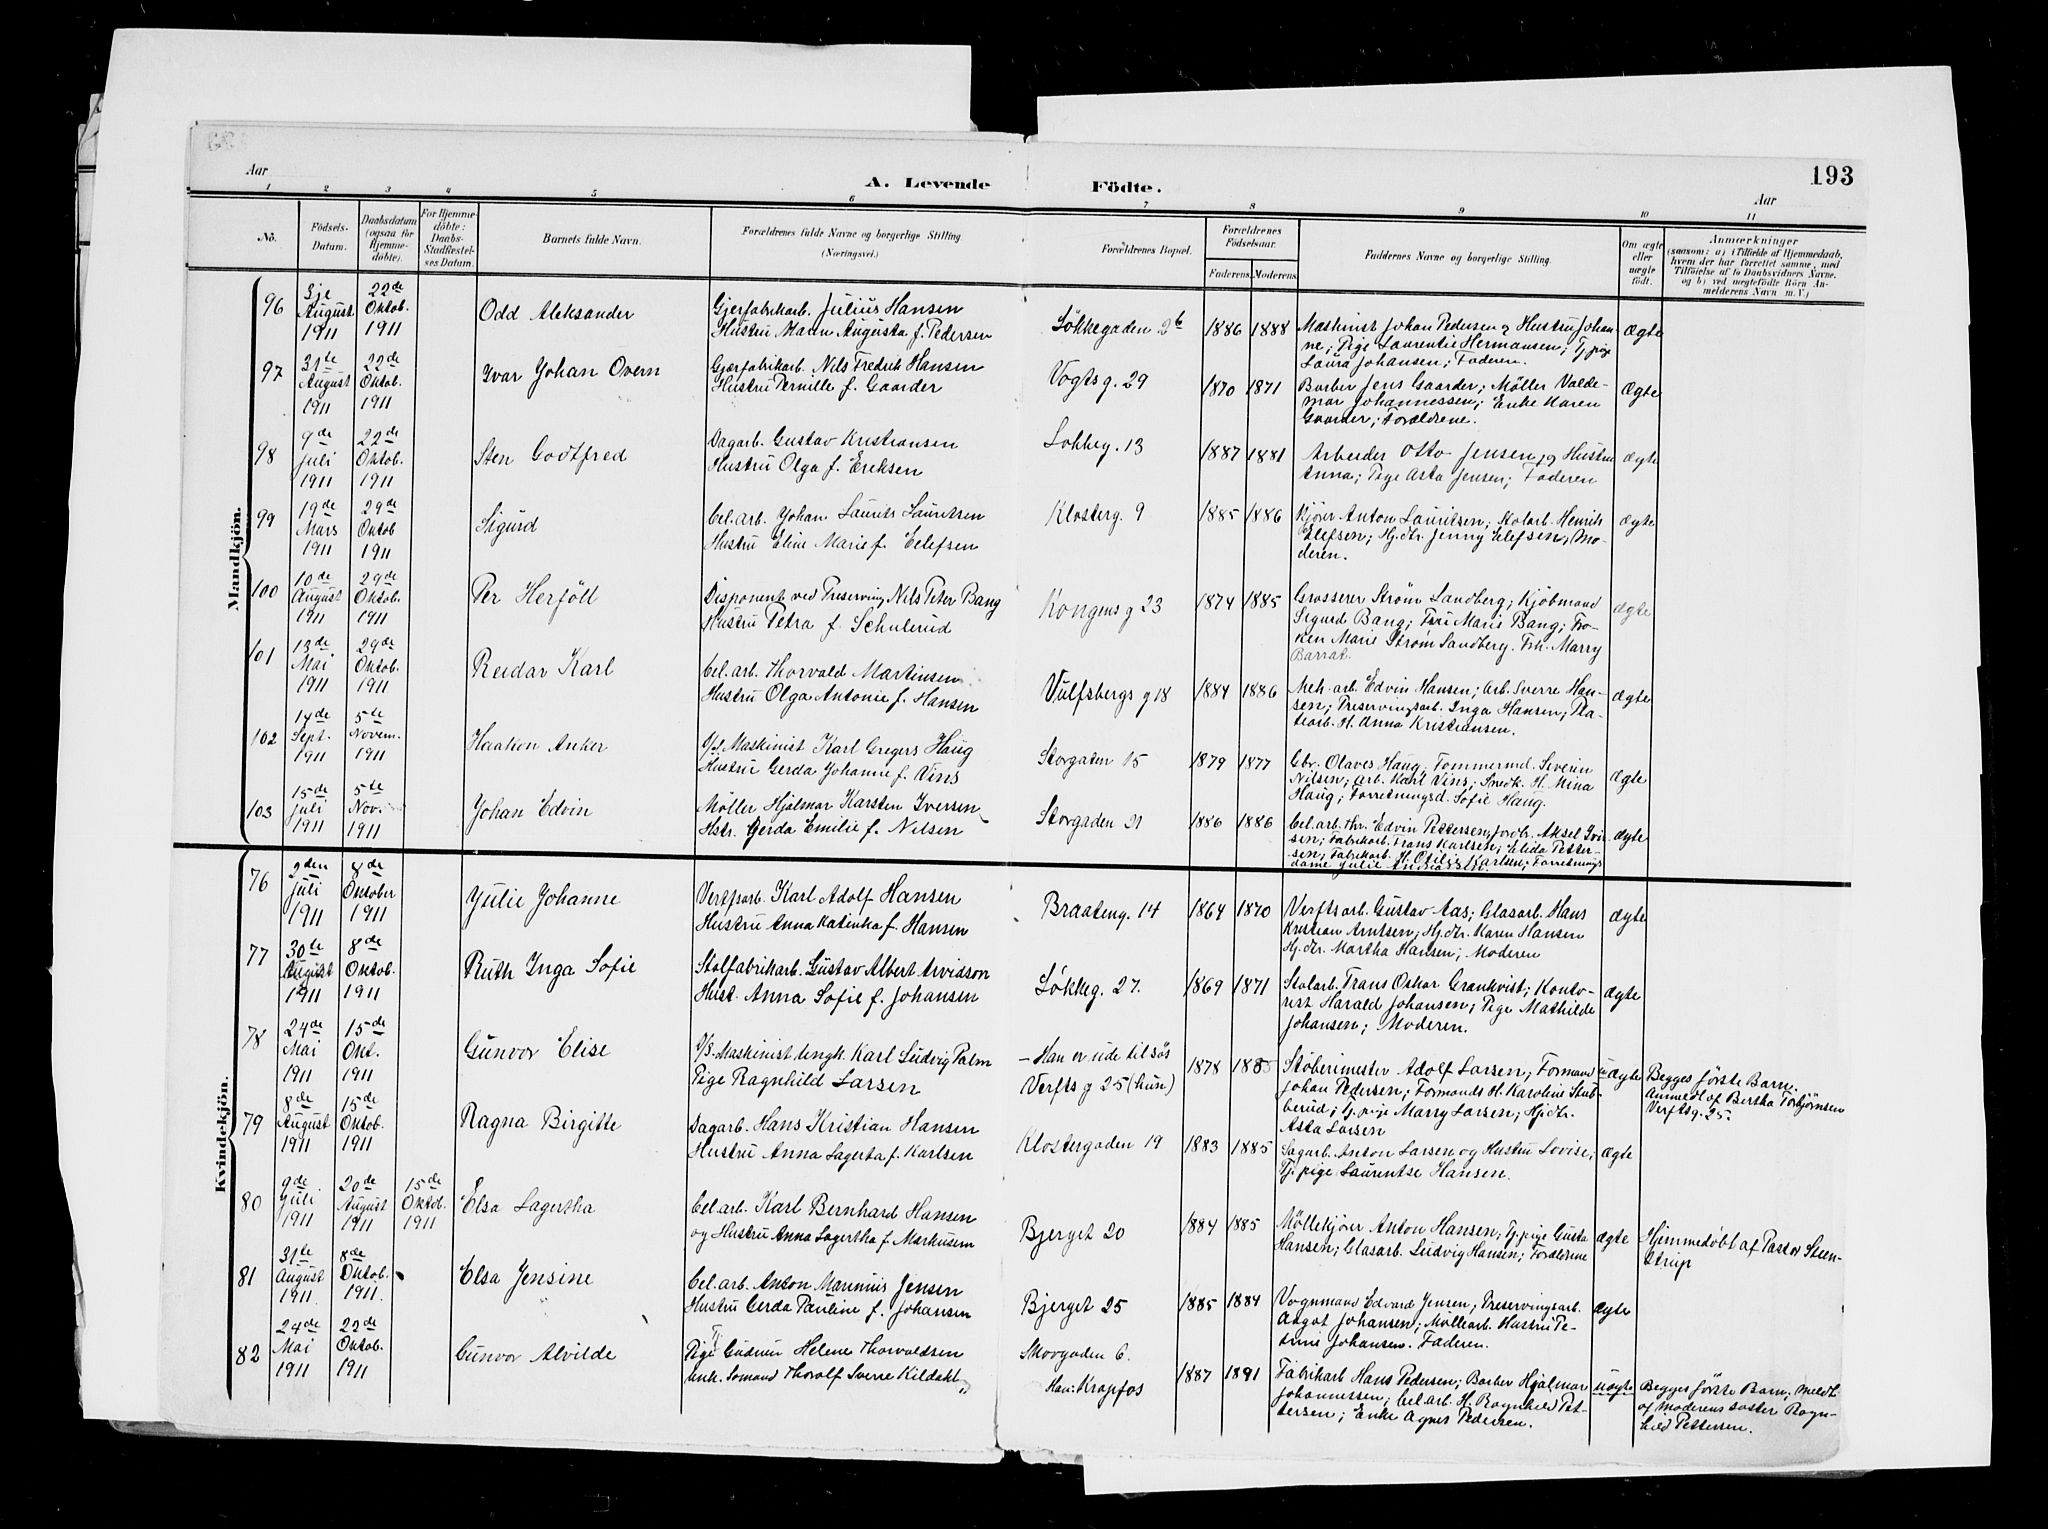 193
Aar
A. Levende Födte.
Aar
1 2 3 4 5 6 7 8 9 10 11
No.
Födsels-Datum.
Daabsdatum (ogsaa for Hjemme-döbte).
For Hjemme-döbte: Daabs-Stadfæstel-ses Datum.
Barnets fulde Navn.
Forældrenes fulde Navne og borgerlige Stilling (Næringsvei.)
Forældrenes Bopæl.
Forældrenes Födselsaar.
Faderens. Moderens.
Faddernes Navne og borgerlige Stilling.
Om ægte eller uægte födt.
Anmærkninger
(saasom: a) i Tilfælde af Hjemmedaab,
hvem der har forrettet samme, med
Tilföielse af to Daabsvidners Navne,
og b) ved uægtefödte Börn An-
melderens Navn m. V.)
Mandkjön.
96 3je August 1911 22de Oktob. 1911 Odd Aleksander
Gjerfabrikarb. Julius Hansen
Hustru Maren Augusta f. Pedersen
Løkkegaden 2b 1886 1888
Maskinist Johan Pedersen og Hustru Johan-
ne; Pige Laurentie Hermansen; Tj. pige
Laura Johansen; Faderen.
Ægte
97 31te August 1911 22de Oktob. 1911 Ivar Johan Overn
Gjerfabrikarb. Nils Fredrik Hansen
Hustru Pernille f. Gaarder
Vogtsg. 29 1870 1871
Barber Jens Gaarder; Møller Valde-
mar Johannessen; Enke Karen
Gaarder; Forældrene.
Ægte
98 9de Juli 1911 22de Oktob. 1911 Sten Godtfred
Dagarb. Gustav Kristiansen
Hustru Olga f. Eriksen
Løkkeg. 13 1887 1881
Arbeider Otto Jensen og Hustru
Anna; Pige Asta Jensen; Faderen
ægte
99 19de Mars 1911 29de Oktob 1911 Sigurd
Cel. arb. Johan Laurits Lauritsen
Hustru Eline Marie f. Eelefsen
Klosterg. 9 1885 1886
Kjører Anton Lauritsen; Stolarb. Henrik
Elefsen; Hj. dtr. Jenny Elefsen; Mo-
deren.
ægte
100 10de August 1911 29de Oktob. 1911 Per Herföll
Disponent ved Preserving Nils Peter Bang
Hustru Petra f. Schulerud
Kongens g 23 1874 1885
Grosserer Strøm Sandberg; Kjøbmand
Sigurd Bang; Fru Marie Bang; Frø-
ken Marie Strøm Sandberg. Frk. Marry
Barrat.
ægte
101 13de Mai 1911 29de Oktob. 1911 Reidar Karl
Cel. arb. Thorvald Martinsen
Hustru Olga Antonie f. Hansen
Vulfsbergs g 18 1884 1886
Mek. arb. Edvin Hansen; Arb. Sverre Han-
sen; Preservingsarb. Inga Hansen; Pla-
tearb. H. Anna Kristiansen.
ægte
102 14de Sept. 1911 5te Novem. 1911 Haakon Anker
Maskinist Karl Gregers Haug
Hustru Gerda Johanne f. Vins
Storgaden 15 1879 1877
Gbr. Olaves Haug; Tømmermd. Severin
Nilsen; Arb. Karl Vins; Smedk. H. Mina
Haug; Forretningsd. Sofie Haug.
ægte
103 15de Juli 1911 5te Nov. 1911 Johan Edvin
Møller Hjalmar Karsten Iversen
Hstr. Gerda Emilie f. Nilsen
Storgaden 21 1886 1886
Cel. arb. Edvin Pettersen; Jordbr. Aksel Iver-
sen; Fabrikarb. Frans Karlsen; Elida Petter-
sen; Fabrikarb. H. Otilie Karlsen; Forretnings-
dame Julie Andersen.
ægte
Kvindekjön.
76 2den Juli 1911 8de Oktober 1911 Julie Johanne
Verftsarb. Karl Adolf Hansen
Hustru Anna Katinka f. Hansen
Braateng. 14 1864 1870
Verftsarb. Gustav Aas; Glasarb. Hans
Kristian Arntsen; Hj. dtr. Karen Hansen
Hj. dtr. Martha Hansen; Moderen
ægte
77 30te August 1911 8de Oktob. 1911 Ruth Inga Sofie
Stolfabrikarb. Gustav Albert Arvidson
Hust. Anna Sofie f. Johansen
Løkkeg. 27. 1869 1871
Stolarb. Frans Oskar Grankvist; Konto-
rist Harald Johansen; Pige Mathilde
Johansen; Moderen.
ægte
78 24de Mai 1911 15de Okt. 1911 Gunvor Elise
Maskinist Ungk. Karl Ludvig Palm
Pige Ragnhild Larsen
– Han er ude til søs
Verfts g 25 (hun)
1878
Støberimester Adolf Larsen; Formand
Johan Pedersen; Formands H. Karoline Stub-
berud; Tj. pige Marry Larsen; Hj. dtr.
Asta Larsen
uægte
Begges første Barn.
Anmeldt af Bertha Torbjørnsen
Verftsg. 25.
79 8de August 1911 15de Oktob. 1911 Ragna Birgitte
Dagarb. Hans Kristian Hansen
Hustru Anna Lagerta f. Karlsen
Klostergaden 19 1883 1885
Sagarb. Anton Larsen og Hustru Lovise;
Tj. pige Laurentse Hansen.
ægte
80 9de Juli 1911 20de August 1911 15de Oktob. 1911 Elsa Lagertha
Cel. arb. Karl Bernhard Hansen
og Hustru Anna Lagertha f. Markusen
Bjerget 20 1884 1885
Møllekjører Anton Hansen; Tj. pige Gusta
Hansen; Glasarb. Ludvig Hansen; Forældrene
ægte
Hjemmedøbt af Pastor Steen-
strup
81 31te August 1911 8de Oktob. 1911 Elsa Jensine
Cel. arb. Anton Marinius Jensen
Hustru Gerda Pauline f. Johansen
Bjerget 25 1885 1884
Vognmand Edvard Jensen; Preservingsarb.
Asgot Johansen; Møllearb. Hustru Pe-
trine Johansen. Faderen.
ægte
82 24de Mai 1911 22de Oktob. 1911 Gunvor Alvilde
Tj. Pige Gudrun Helene Thorvaldsen
Unk. Sømand Thoralf Sverre Kildahl
Skovgaden 6.
Han: Krapfos
1887 1891
Fabrikarb Hans Pedersen; Barber Hjalmar
Johannessen; Cel. arb. H. Ragnhild Pet-
tersen; Enke Agnes Pedersen.
uægte
Begges første Barn; meldt
af Moderens søster Ragn-
hild Pettersen.